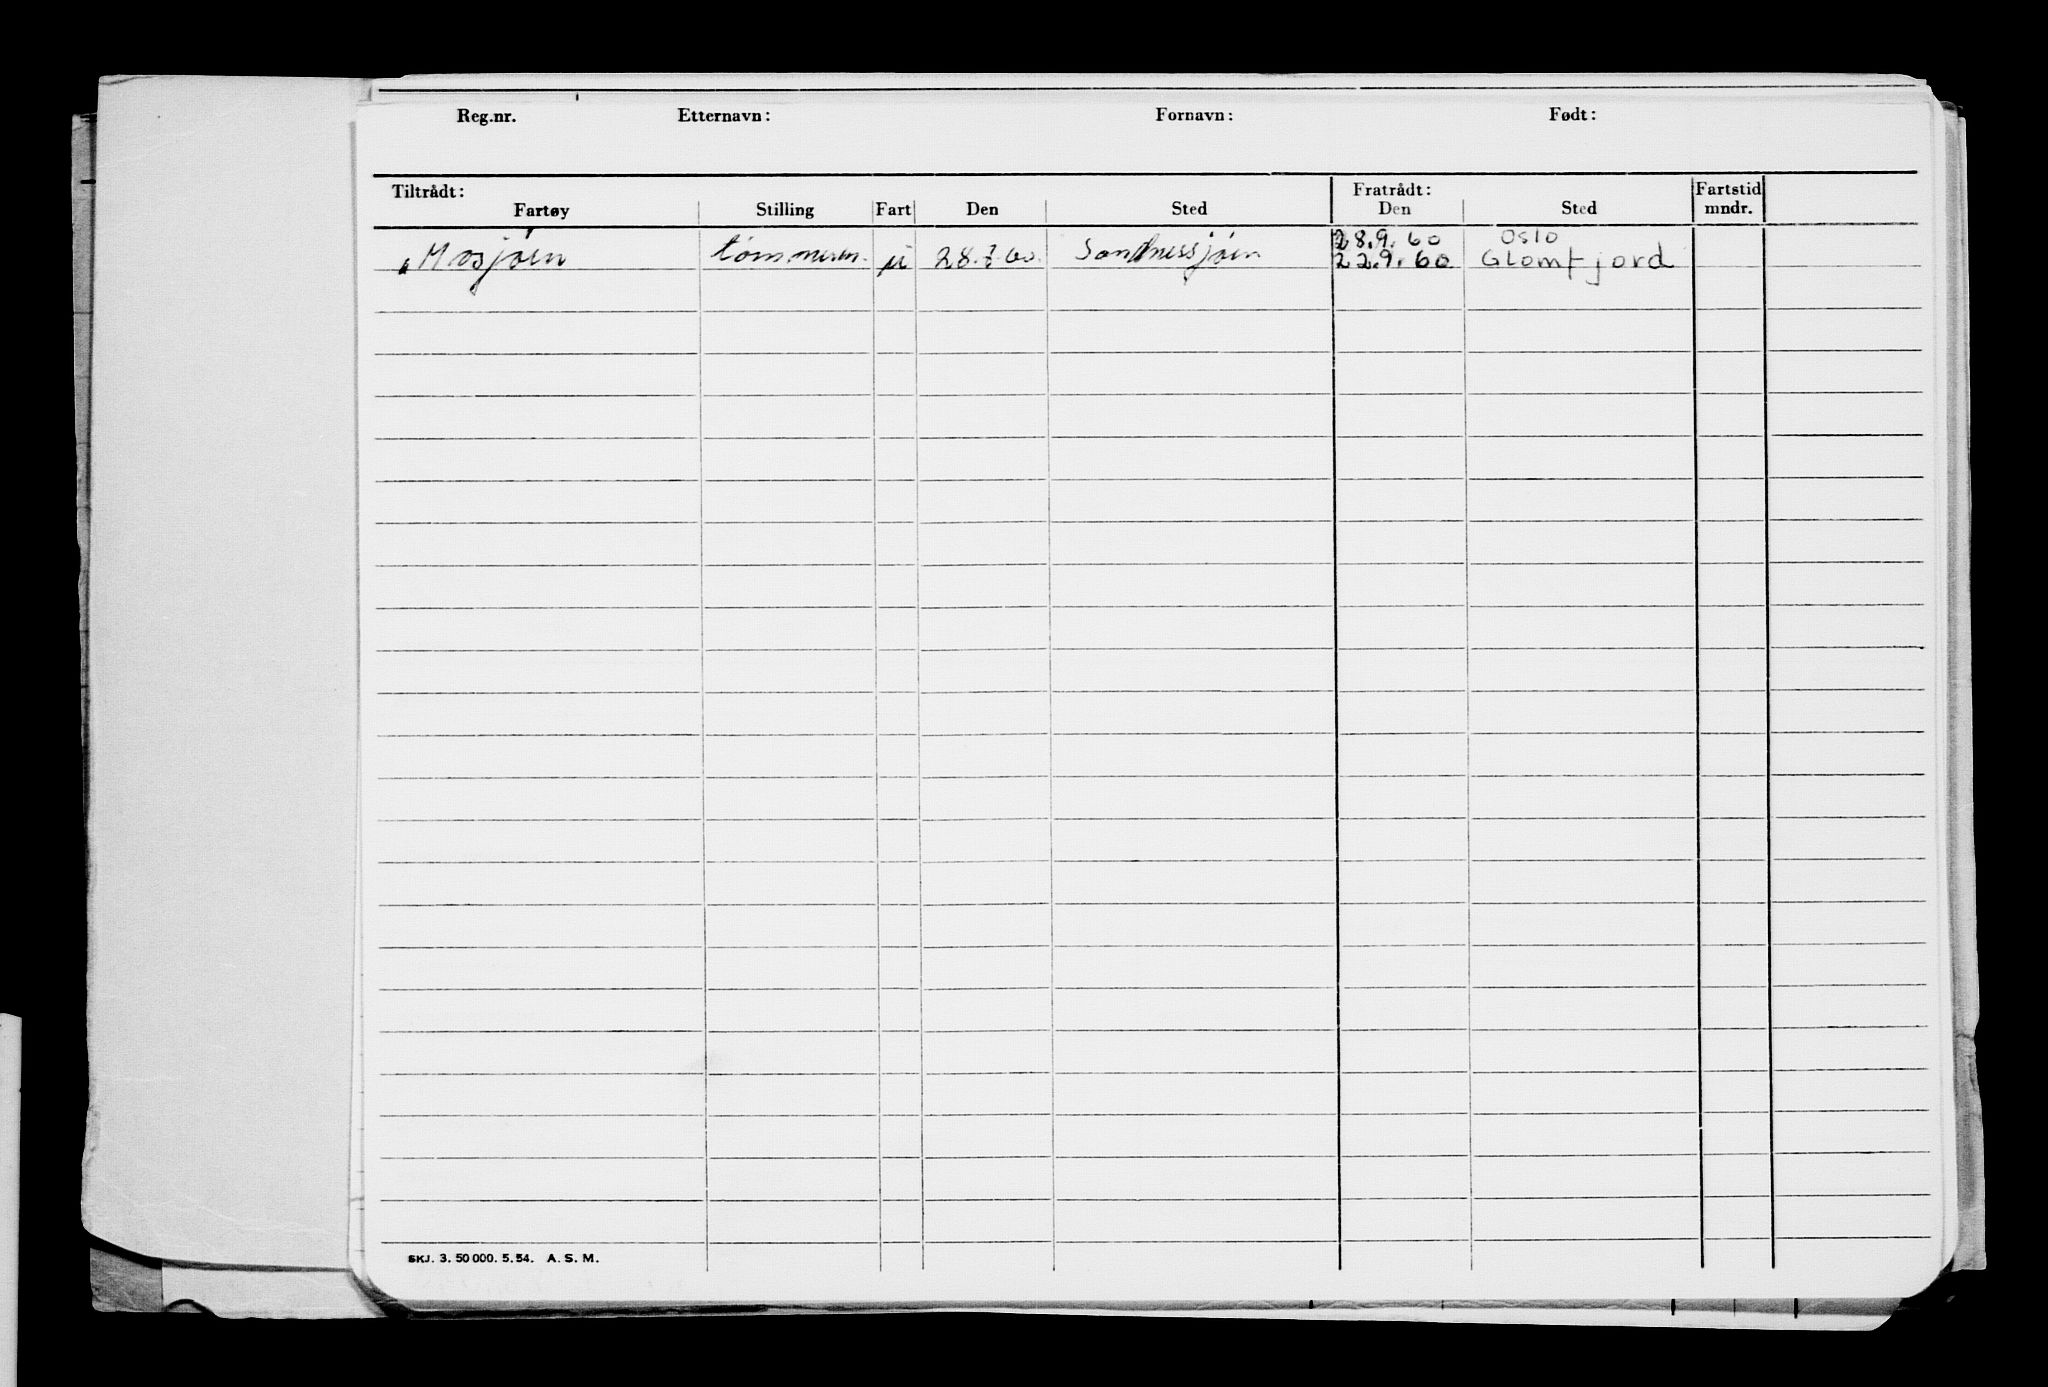 Reg.nr. Etternavn: Fornavn: Født:
Tiltrådt: Fratrådt: Fartstid
Fartøy Stilling Fart Den Sted Den Sted mndr.
28.9.60 Oslo
"Mosjøen tømmerm. u 28.7.60 Sandnessjøen 22.9.60 Glomfjord
SKJ. 3. 50 000. 5.54. A. S. M.